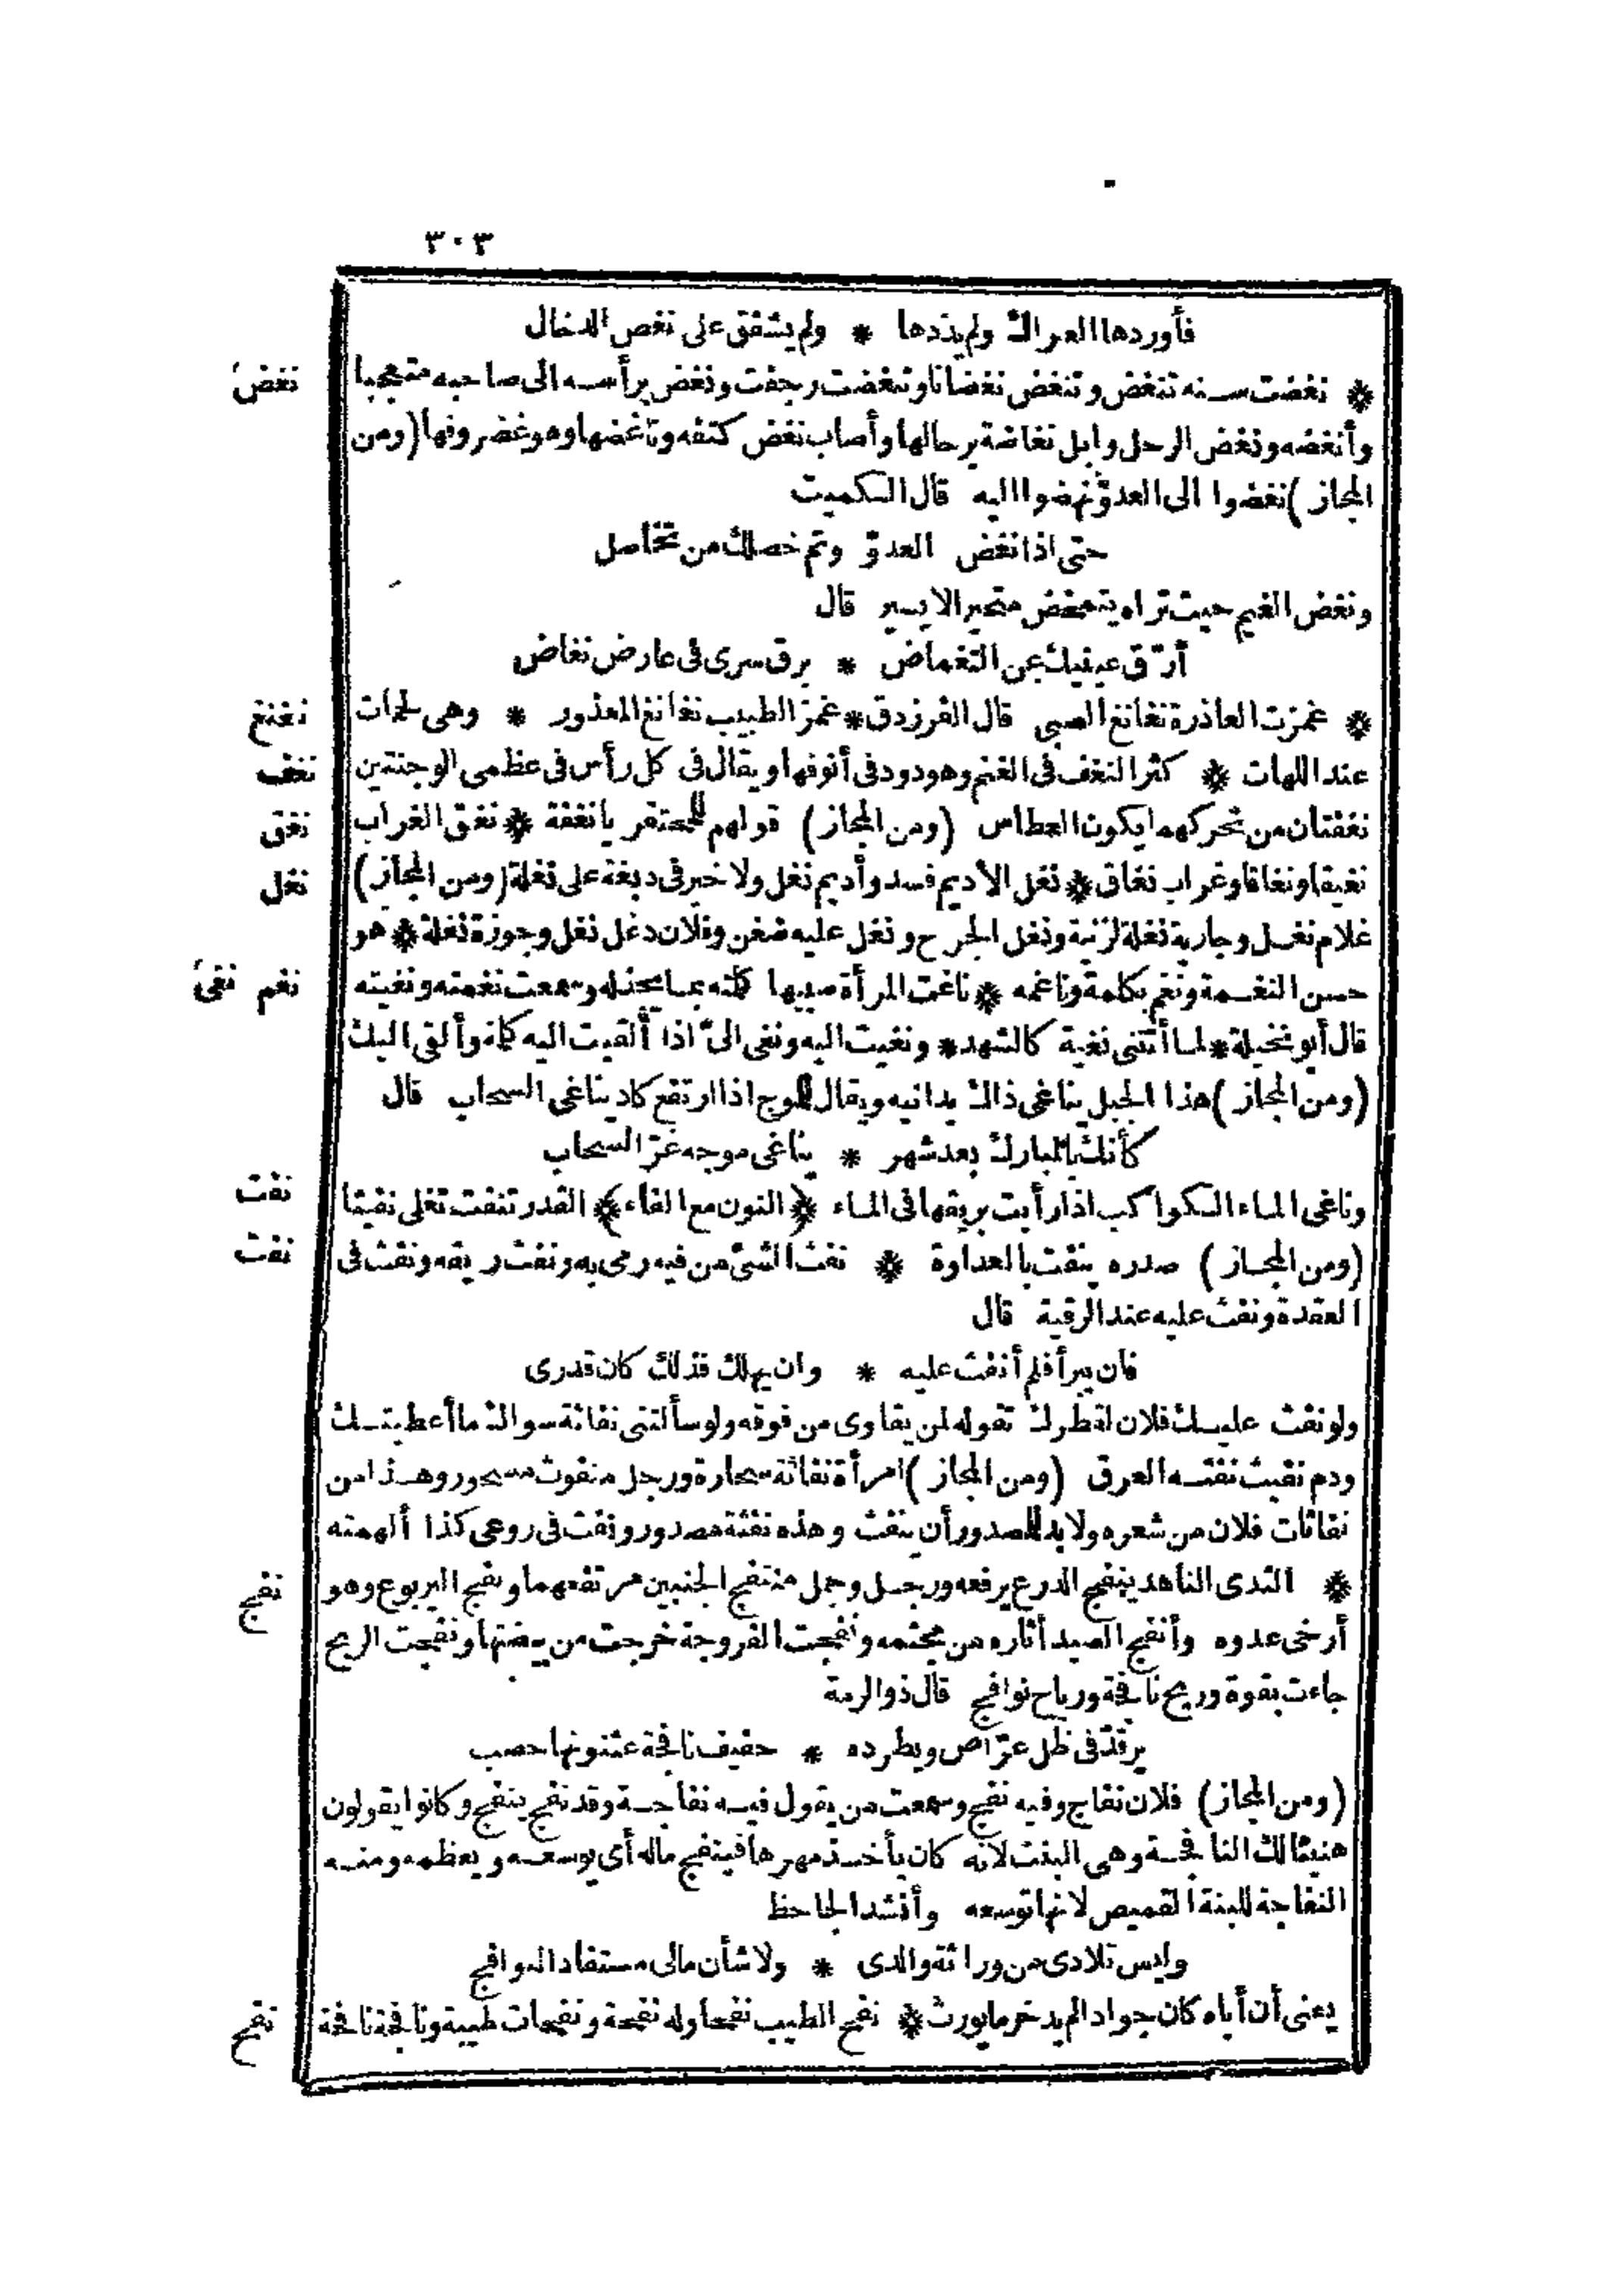 ٣٠٣
فأوردها العراك ولم يذدها * ولم يشفق على نغص الدخال
* نغضت سنه تنغض وتنغض نغضانا وتنغضت رجفت ونغض برأسه الى صاحبه متعجبا
نغض
وأنغضه ونغض الرحل وابل نغاضة برحالها وأصاب نغض كتفه وناغضها وهو غضروفها (ومن
المجاز) نغضوا الى العدوّ نهضوا اليه قال الكميت
حتى اذا نغض العدوّ وتم خصلك من تخاصل
ونغض الغيم حيث تراه يتمخض متحير الا يسير قال
أرّق عينيك عن التغماض * برق سرى فى عارض نغاض
* غمزت العاذرة نغانغ الصبى قال الفرزدق * غمز الطبيب نغانغ المعذور * وهى لحمات
نغنغ
عند اللهات * كثر النغف فى الغنم وهو دود فى أنوفها ويقال فى كل رأس فى عظمى الوجنتين
نغف
نغفتان من تحركهما يكون العطاس (ومن المجاز) قولهم للمحتقر يا نغفة * نغق الغراب
نغق
نغيقا ونغاقا وغراب نغاق * نغل الأديم فسد وأديم نغل ولا خير فى دبغة على نغلة (ومن المجاز)
نغل
غلام نغل وجارية نغلة لزنية ونغل الجرح ونغل عليه ضغن وفلان دغل نغل وجوزة نغلة * هو
حسن النغمة ونغم بكلمة وناغمه * ناغت المرأة صبيها كلته بما يجذله وسمعت نغمته ونغيته
نغم نغى
قال أبو نخيلة * لما أتتنى نغية كالشهد * ونغيت اليه ونغى الىّ اذا ألقيت اليه كلة وألقى اليك
(ومن المجاز) هذا الجبل يناغى ذاك يدانيه ويقال للموج اذا ارتفع كاد يناغى السحاب قال
كأنك بالمبارك بعد شهر * يناغى موجه غرّ السحاب
وناغى الماء الكواكب اذا رأيت بريقها فى الماء ﴿النون مع الفاء﴾ القدر تنفت تغلى نفيتا
نفت
(ومن المجاز) صدره ينفت بالعداوة * نفث الشئ من فيه رمى به ونفث ريقه ونفث فى
نفث
العقدة ونفث عليه عند الرقية قال
فان يبرأ فلم أنفث عليه * وان يهلك فذلك كان قدرى
ولو نفث عليك فلان لقطرك تقوله لمن يقاوى من فوقه ولو سألتنى نفاثة سواك ما أعطيتك
ودم نفيث نفثه العرق (ومن المجاز) امرأة نفاثة سحارة ورجل منفوث مسحور وهذا من
نفاثات فلان من شعره ولا بد للصدور أن ينفث وهذه نفثة مصدور ونفث فى روعى كذا ألهمته
* الثدى الناهد ينفج الدرع يرفعه ورجل وجمل منتفج الجنبين مرتفعهما ونفج اليربوع وهو
نفج
أرخى عدوه وأنفج الصيد أثاره من مجثمه ونفجت الفروجة خرجت من بيضتها ونفجت الريح
جاءت بقوة وريح نافجة ورياح نوافج قال ذو الرمة
يرقدّ فى ظل عرّاص ويطرده * حفيف نافجة عثنونها حصب
(ومن المجاز) فلان نفاج وفيه نفج وسمعت من يقول فيه نفاجة وقد نفج ينفج وكانوا يقولون
هنيئا لك النافجة وهى البنت لانه كان يأخذ مهرها فينفج ماله أى يوسعه ويعظمه ومنه
النفاجة للبنة القميص لانها توسعه وأنشد الجاحظ
وليس تلادى من وراثة والدى * ولا شأن مالى مستفاد النوافج
يعنى أن أباه كان جوادا لم يدخر ما يورث * نفح الطيب نفحا وله نفحة ونفحات طيبة ونافحة نافحة
نفح